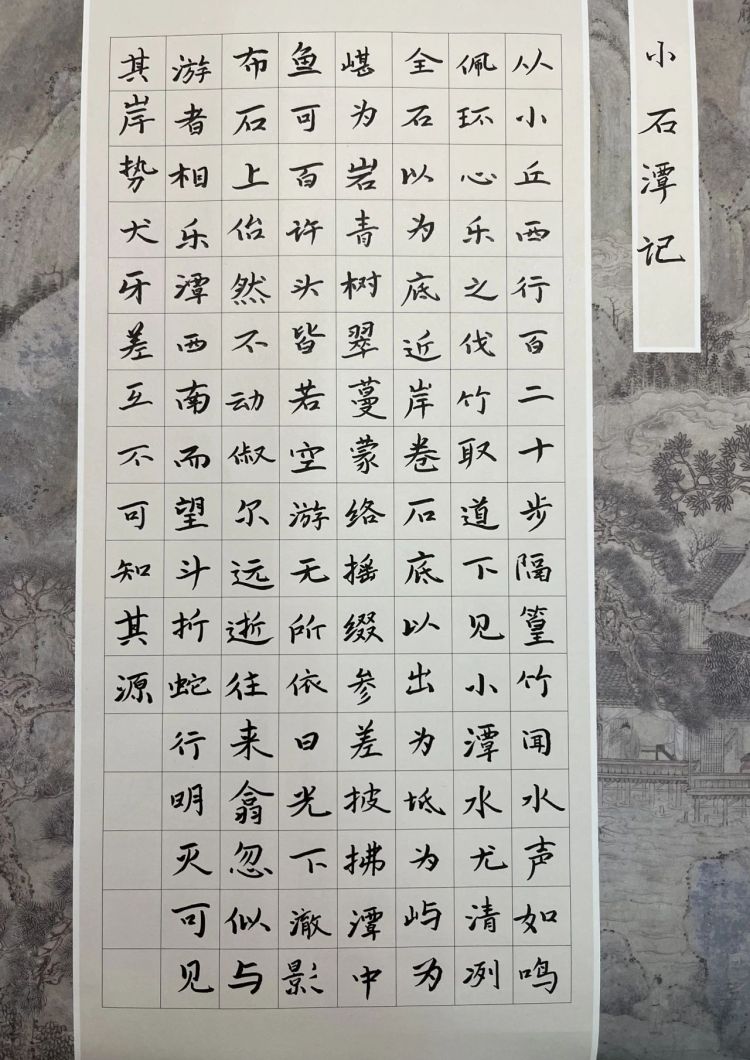 小石潭记
从小丘西行百二十步隔篁竹闻水声如鸣
佩环心乐之伐竹取道下见小潭水尤清冽
全石以为底近岸卷石底以出为坻为屿为
嵁为岩青树翠蔓蒙络摇缀参差披拂潭中
鱼可百许头皆若空游无所依日光下澈影
布石上佁然不动俶尔远逝往来翕忽似与
游者相乐潭西南而望斗折蛇行明灭可见
其岸势犬牙差互不可知其源